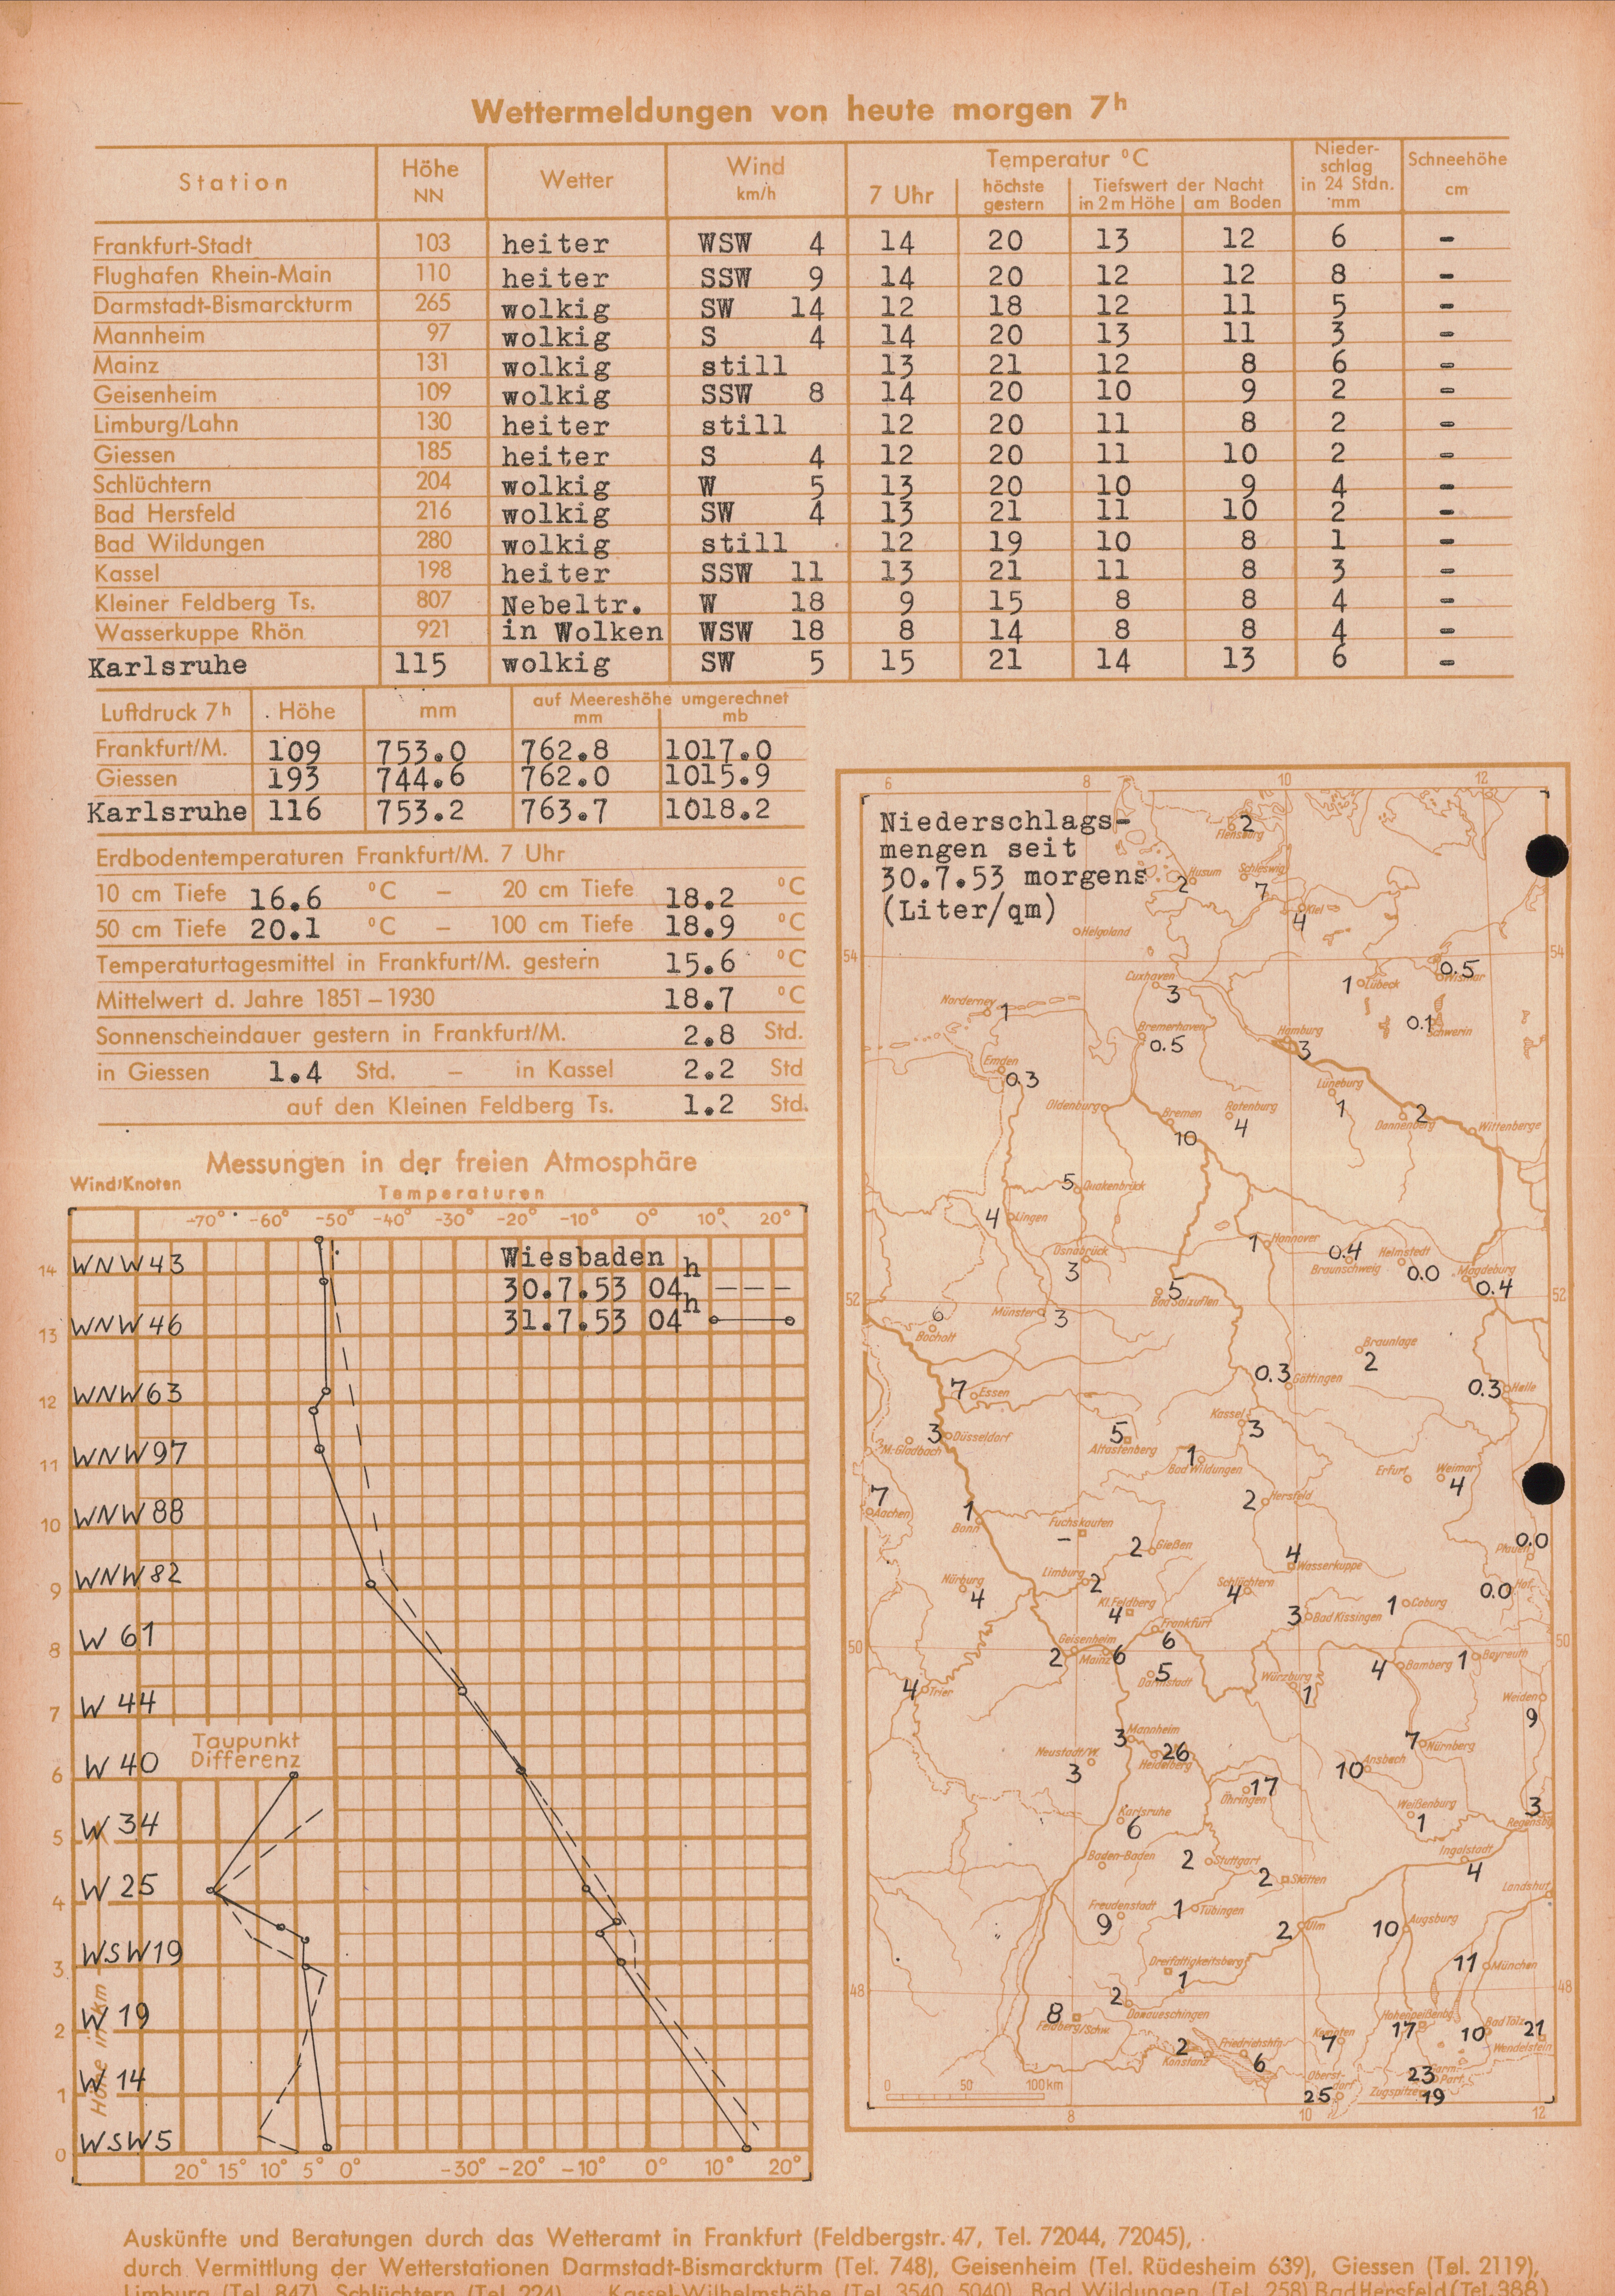 Wettermeldungen von heute morgen 7h
Station Höhe NN Wetter Wind km/h Temperatur °C Nieder-schlag in 24 Stdn. mm Schneehöhe cm
7 Uhr höchste gestern Tiefswert der Nacht in 2m Höhe am Boden
Frankfurt-Stadt 103 heiter WSW 4 14 20 13 12 6 -
Flughafen Rhein-Main 110 heiter SSW 9 14 20 12 12 8 -
Darmstadt-Bismarckturm 265 wolkig SW 14 12 18 12 11 5 -
Mannheim 97 wolkig S 4 14 20 13 11 3 -
Mainz 131 wolkig still 13 21 12 8 6 -
Geisenheim 109 wolkig SSW 8 14 20 10 9 2 -
Limburg/Lahn 130 heiter still 12 20 11 8 2 -
Giessen 185 heiter S 4 12 20 11 10 2 -
Schlüchtern 204 wolkig W 5 13 20 10 9 4 -
Bad Hersfeld 216 wolkig SW 4 13 21 11 10 2 -
Bad Wildungen 280 wolkig still 12 19 10 8 1 -
Kassel 198 heiter SSW 11 13 21 11 8 3 -
Kleiner Feldberg Ts. 807 Nebeltr. W 18 9 15 8 8 4 -
Wasserkuppe Rhön 921 in Wolken WSW 18 8 14 8 8 4 -
Karlsruhe 115 wolkig SW 5 15 21 14 13 6 -
Luftdruck 7h Höhe mm auf Meereshöhe umgerechnet mm mb
Frankfurt/M. 109 753.0 762.8 1017.0
Giessen 193 744.6 762.0 1015.9
Karlsruhe 116 753.2 763.7 1018.2
Erdbodentemperaturen Frankfurt/M. 7 Uhr
10 cm Tiefe 16.6 °C – 20 cm Tiefe 18.2 °C
50 cm Tiefe 20.1 °C – 100 cm Tiefe 18.9 °C
Temperaturtagesmittel in Frankfurt/M. gestern 15.6 °C
Mittelwert d. Jahre 1851–1930 18.7 °C
Sonnenscheindauer gestern in Frankfurt/M. 2.8 Std.
in Giessen 1.4 Std. – in Kassel 2.2 Std
auf den Kleinen Feldberg Ts. 1.2 Std.
Messungen in der freien Atmosphäre
Wind/Knoten
Temperaturen
-70° -60° -50° -40° -30° -20° -10° 0° 10° 20°
Wiesbaden
30.7.53 04h
31.7.53 04h
14 WNW 43
13 WNW 46
12 WNW 63
11 WNW 97
10 WNW 88
9 WNW 82
8 W 61
7 W 44
Taupunkt
Differenz
6 W 40
5 W 34
4 W 25
3 WSW 19
2 W 19
1 W 14
0 WSW 5
Höhe in km
20° 15° 10° 5° 0° -30° -20° -10° 0° 10° 20°
6 8 10 12
Niederschlags-
mengen seit
30.7.53 morgens
(Liter/qm)
Flensburg 2
Husum 2
Schleswig 7
Kiel 4
Helgoland
54 54
Cuxhaven 3
Lübeck 1
Wismar 0.5
Norderney 1
Bremerhaven 0.5
Hamburg 3
Schwerin 0.1
Emden 0.3
Lüneburg 1
Oldenburg
Bremen 10
Rotenburg 4
Dannenberg 2
Wittenberge
Quakenbrück 5
Lingen 4
Osnabrück 3
Hannover 1
Braunschweig 0.4
Helmstedt 0.0
Magdeburg 0.4
52 52
Bad Salzuflen 5
Münster 3
Bocholt 6
Braunlage 2
Göttingen 0.3
Halle 0.3
Essen 7
Düsseldorf 3
M.Gladbach
Altastenberg 5
Kassel 3
Bad Wildungen 1
Erfurt
Weimar 4
Aachen 7
Bonn 1
Hersfeld 2
Fuchskauten –
Gießen 2
Wasserkuppe 4
Plauen 0.0
Hof 0.0
Nürburg 4
Limburg 2
Kl.Feldberg 4
Schlüchtern 4
Bad Kissingen 3
Coburg 1
Frankfurt 6
50 50
Geisenheim 2
Mainz 6
Darmstadt 5
Würzburg 1
Bamberg 4
Bayreuth 1
Trier 4
Weiden 9
Mannheim 3
Heidelberg 26
Neustadt/W. 3
Nürnberg 7
Ansbach 10
Öhringen 17
Karlsruhe 6
Weißenburg 1
Regensbg 3
Baden-Baden
Stuttgart 2
Stötten 2
Ingolstadt 4
Landshut
Freudenstadt 9
Tübingen 1
Ulm 2
Augsburg 10
Dreifaltigkeitsberg 1
München 11
48 48
Donaueschingen 2
Feldberg/Schw. 8
Konstanz 2
Friedrichshfn 6
Kempten 7
Hohenpeißenbg 17
Bad Tölz 10
Wendelstein 21
Oberst-dorf 25
Garm. Part. 23
Zugspitze 19
0 50 100km
8 10 12
Auskünfte und Beratungen durch das Wetteramt in Frankfurt (Feldbergstr. 47, Tel. 72044, 72045),
durch Vermittlung der Wetterstationen Darmstadt-Bismarckturm (Tel. 748), Geisenheim (Tel. Rüdesheim 639), Giessen (Tel. 2119),
Limburg (Tel. 847), Schlüchtern (Tel. 224), Kassel-Wilhelmshöhe (Tel. 3540, 5040), Bad Wildungen (Tel. 258) Bad Hersfeld (Tel. 388)